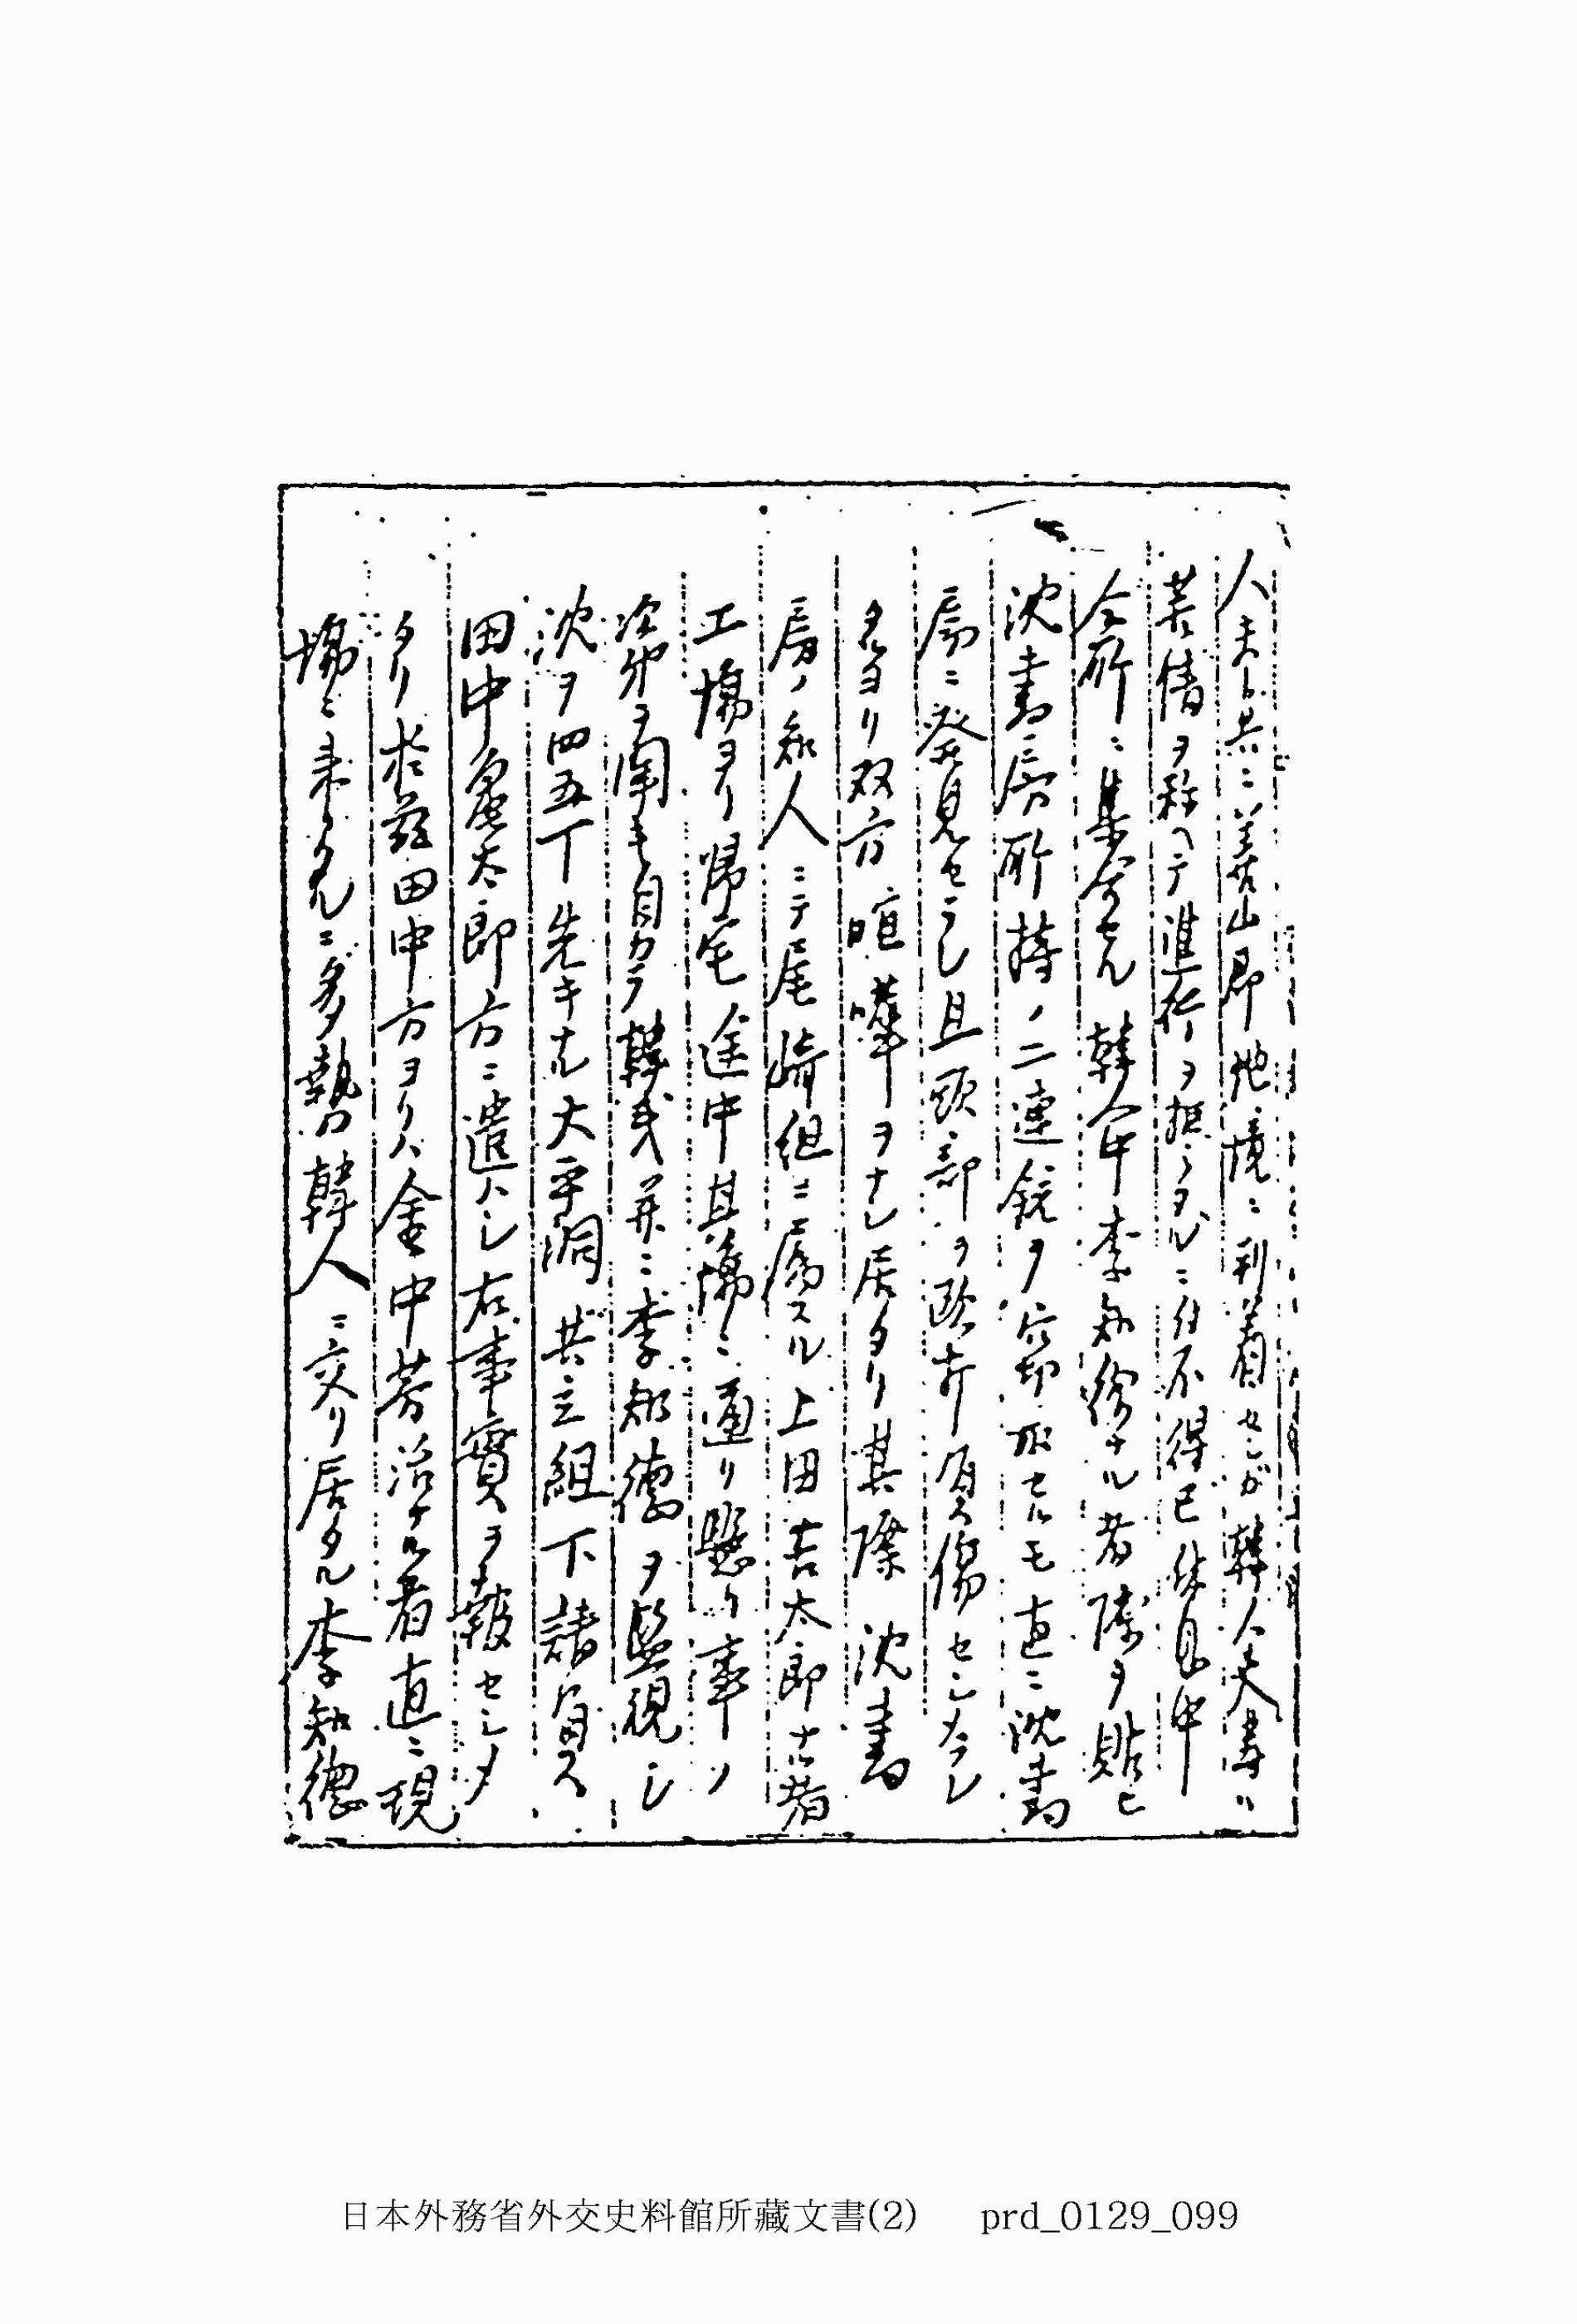 人夫ト共ニ美山郡地境ニ到着セシガ韓人夫等ハ
苦情ヲ称ヘテ進行ヲ拒ミタルニ付不得已休息中
仝所ニ集合セル韓人中李知徳ナル者隙ヲ貼ヒ
沈書房所持ノ二連銃ヲ窃取セルモ直ニ沈書
房ニ発見セラレ且頭部ヲ殴打負傷セシメラレ
タルヨリ双方喧嘩ヲナシ居タリ其際沈書
房ノ知人ニテ尾崎組ニ属スル上田吉太郎ナル者
工場ヨリ帰宅途中其場ニ通リ懸リ事ノ
次第ヲ聞キ自カラ韓銭并ニ李知徳ヲ監視シ
沈ヲ四五丁先キナル大平洞共立組下請負人
田中亀太郎方ニ遣ハシ右事實ヲ報セシメ
タリ於茲田中方ヨリハ金中芳治ナル者直ニ現
場ニ来タルニ多勢韓人ニ交リ居タル李知徳
日本外務省外交史料館所藏文書(2) prd_0129_099